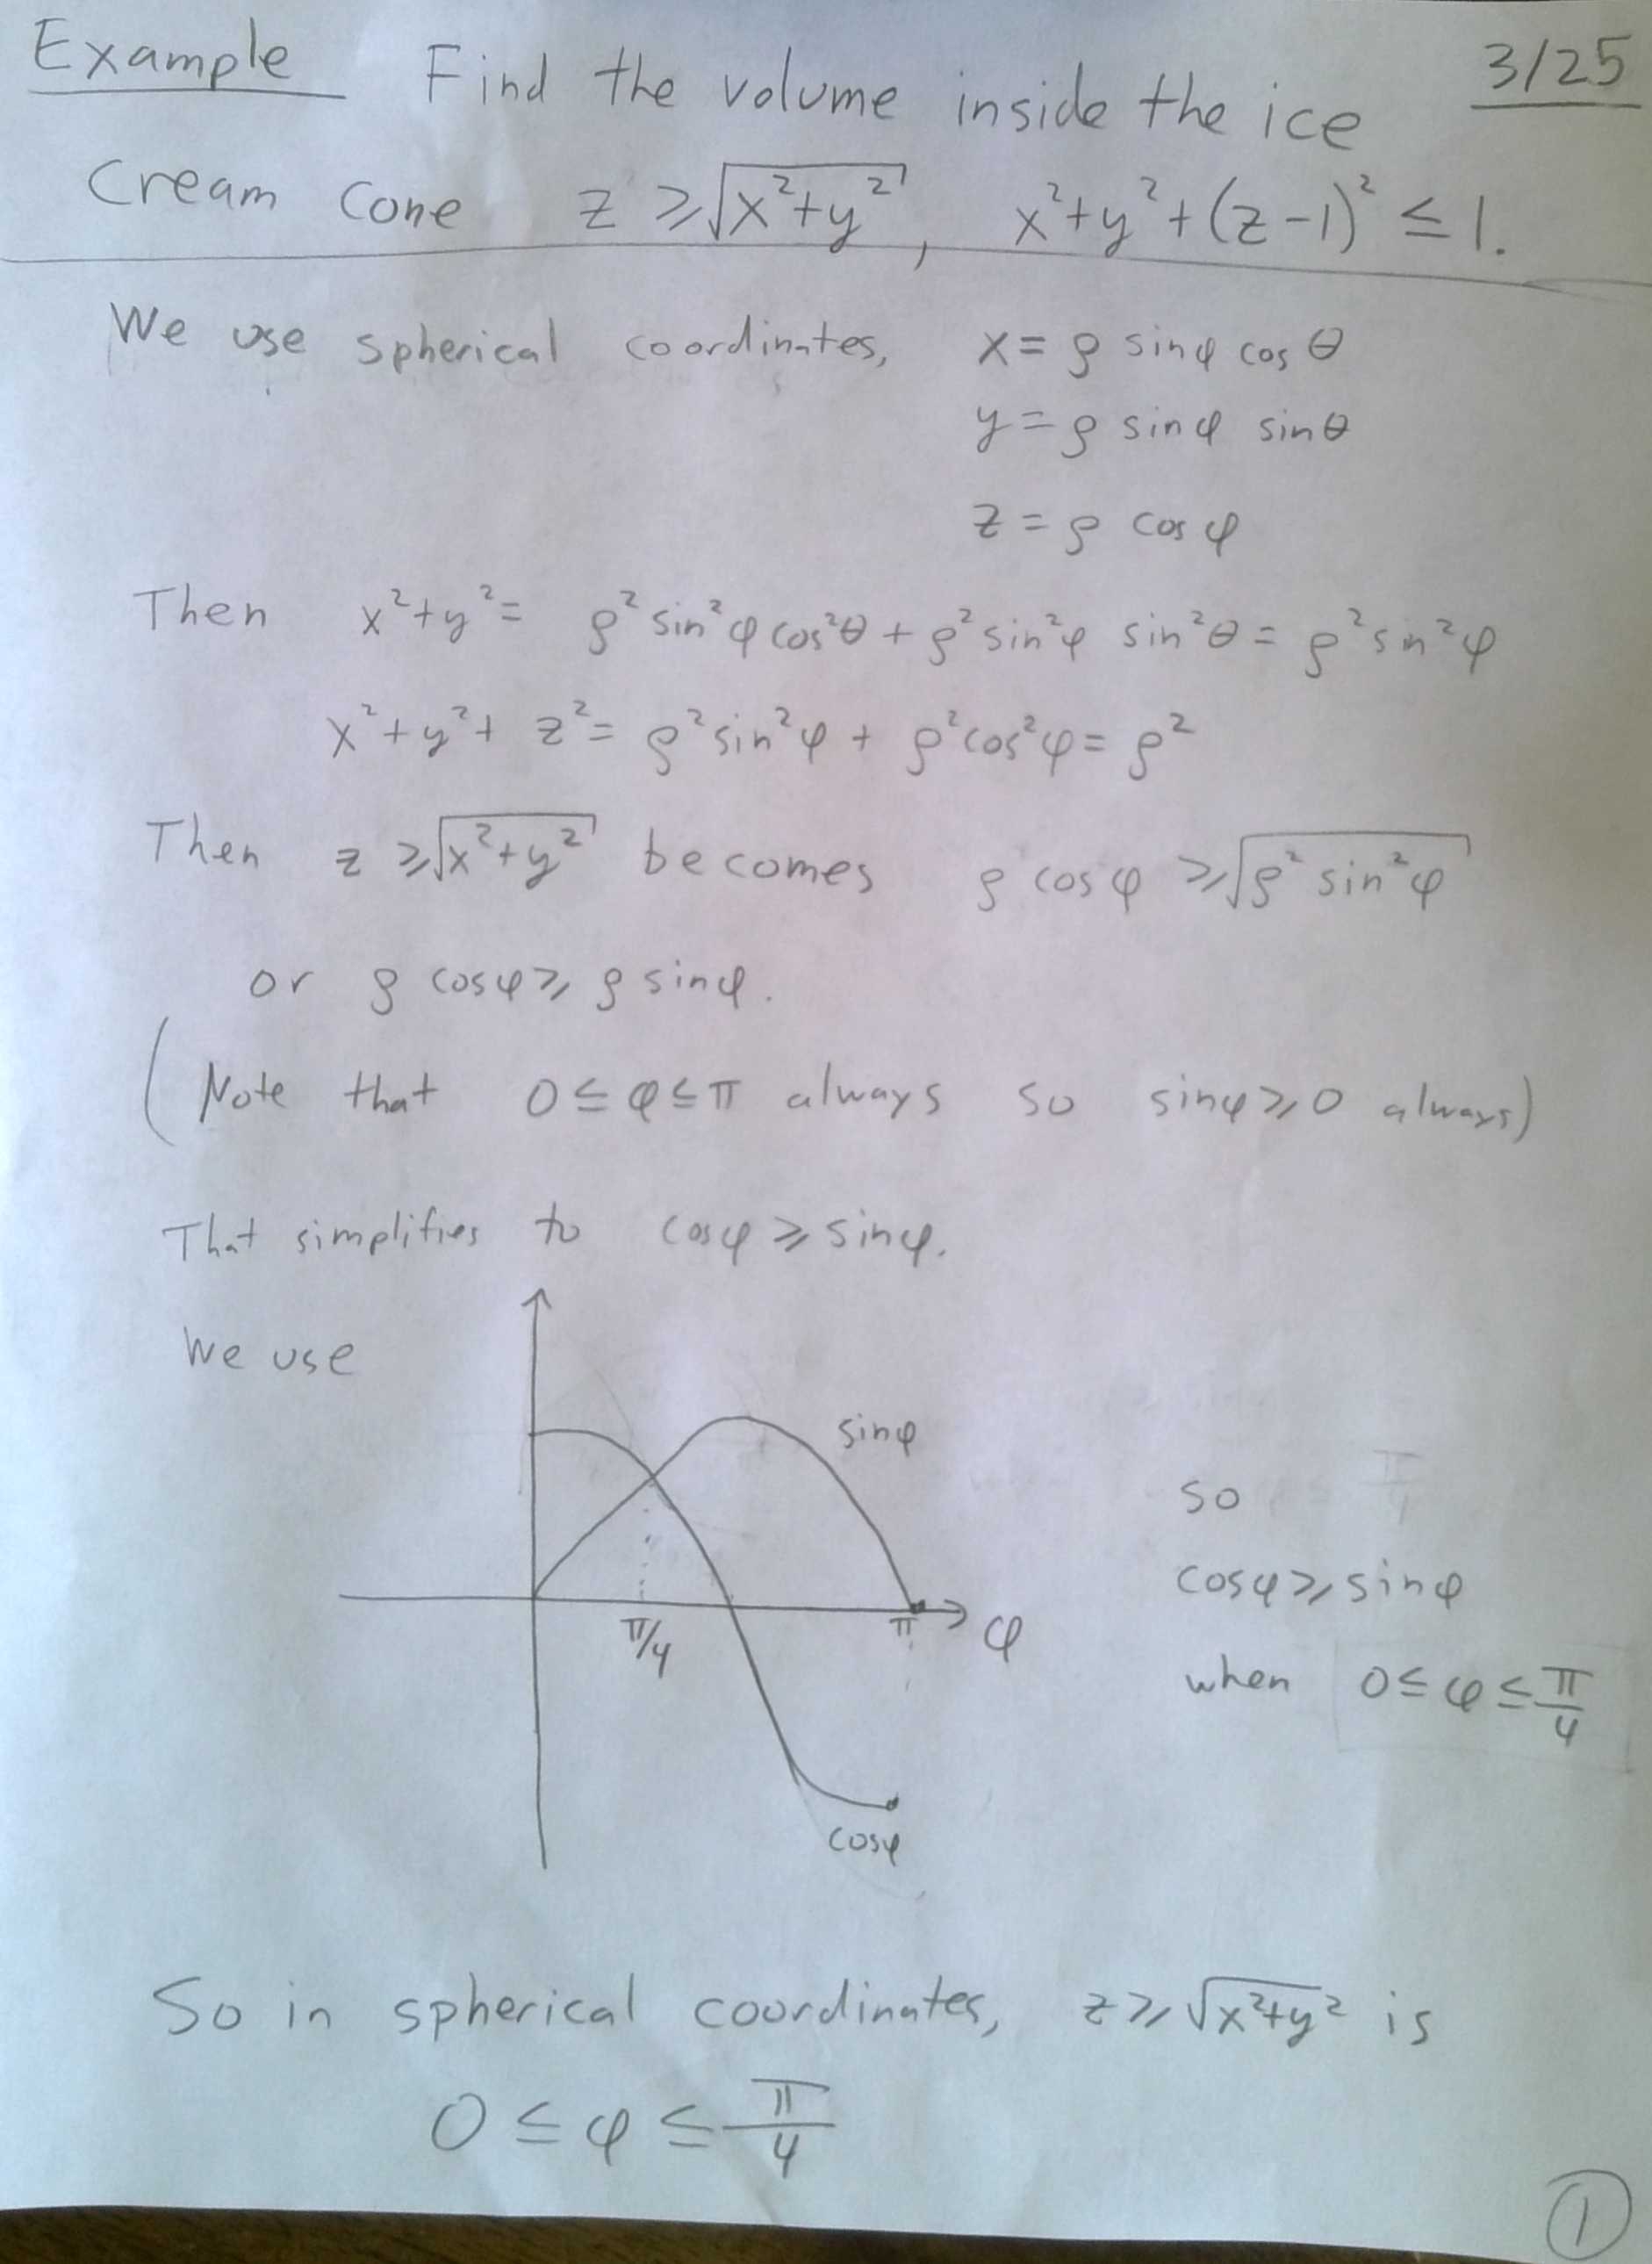 Example Find the volume inside the ice 3/25
cream cone z ≥ √(x²+y²), x²+y²+(z-1)² ≤ 1.
We use spherical coordinates, x = ρ sinφ cos θ
y = ρ sinφ sinθ
z = ρ cos φ
Then x²+y² = ρ² sin²φ cos²θ + ρ² sin²φ sin²θ = ρ² sin²φ
x²+y²+z² = ρ² sin²φ + ρ² cos²φ = ρ²
Then z ≥ √(x²+y²) becomes ρ cosφ ≥ √(ρ² sin²φ)
or ρ cosφ ≥ ρ sinφ.
(Note that 0 ≤ φ ≤ π always so sinφ ≥ 0 always)
That simplifies to cosφ ≥ sinφ.
We use
sinφ
so
cosφ ≥ sinφ
π/4 π φ
when 0 ≤ φ ≤ π/4
cosφ
So in spherical coordinates, z ≥ √(x²+y²) is
0 ≤ φ ≤ π/4
1